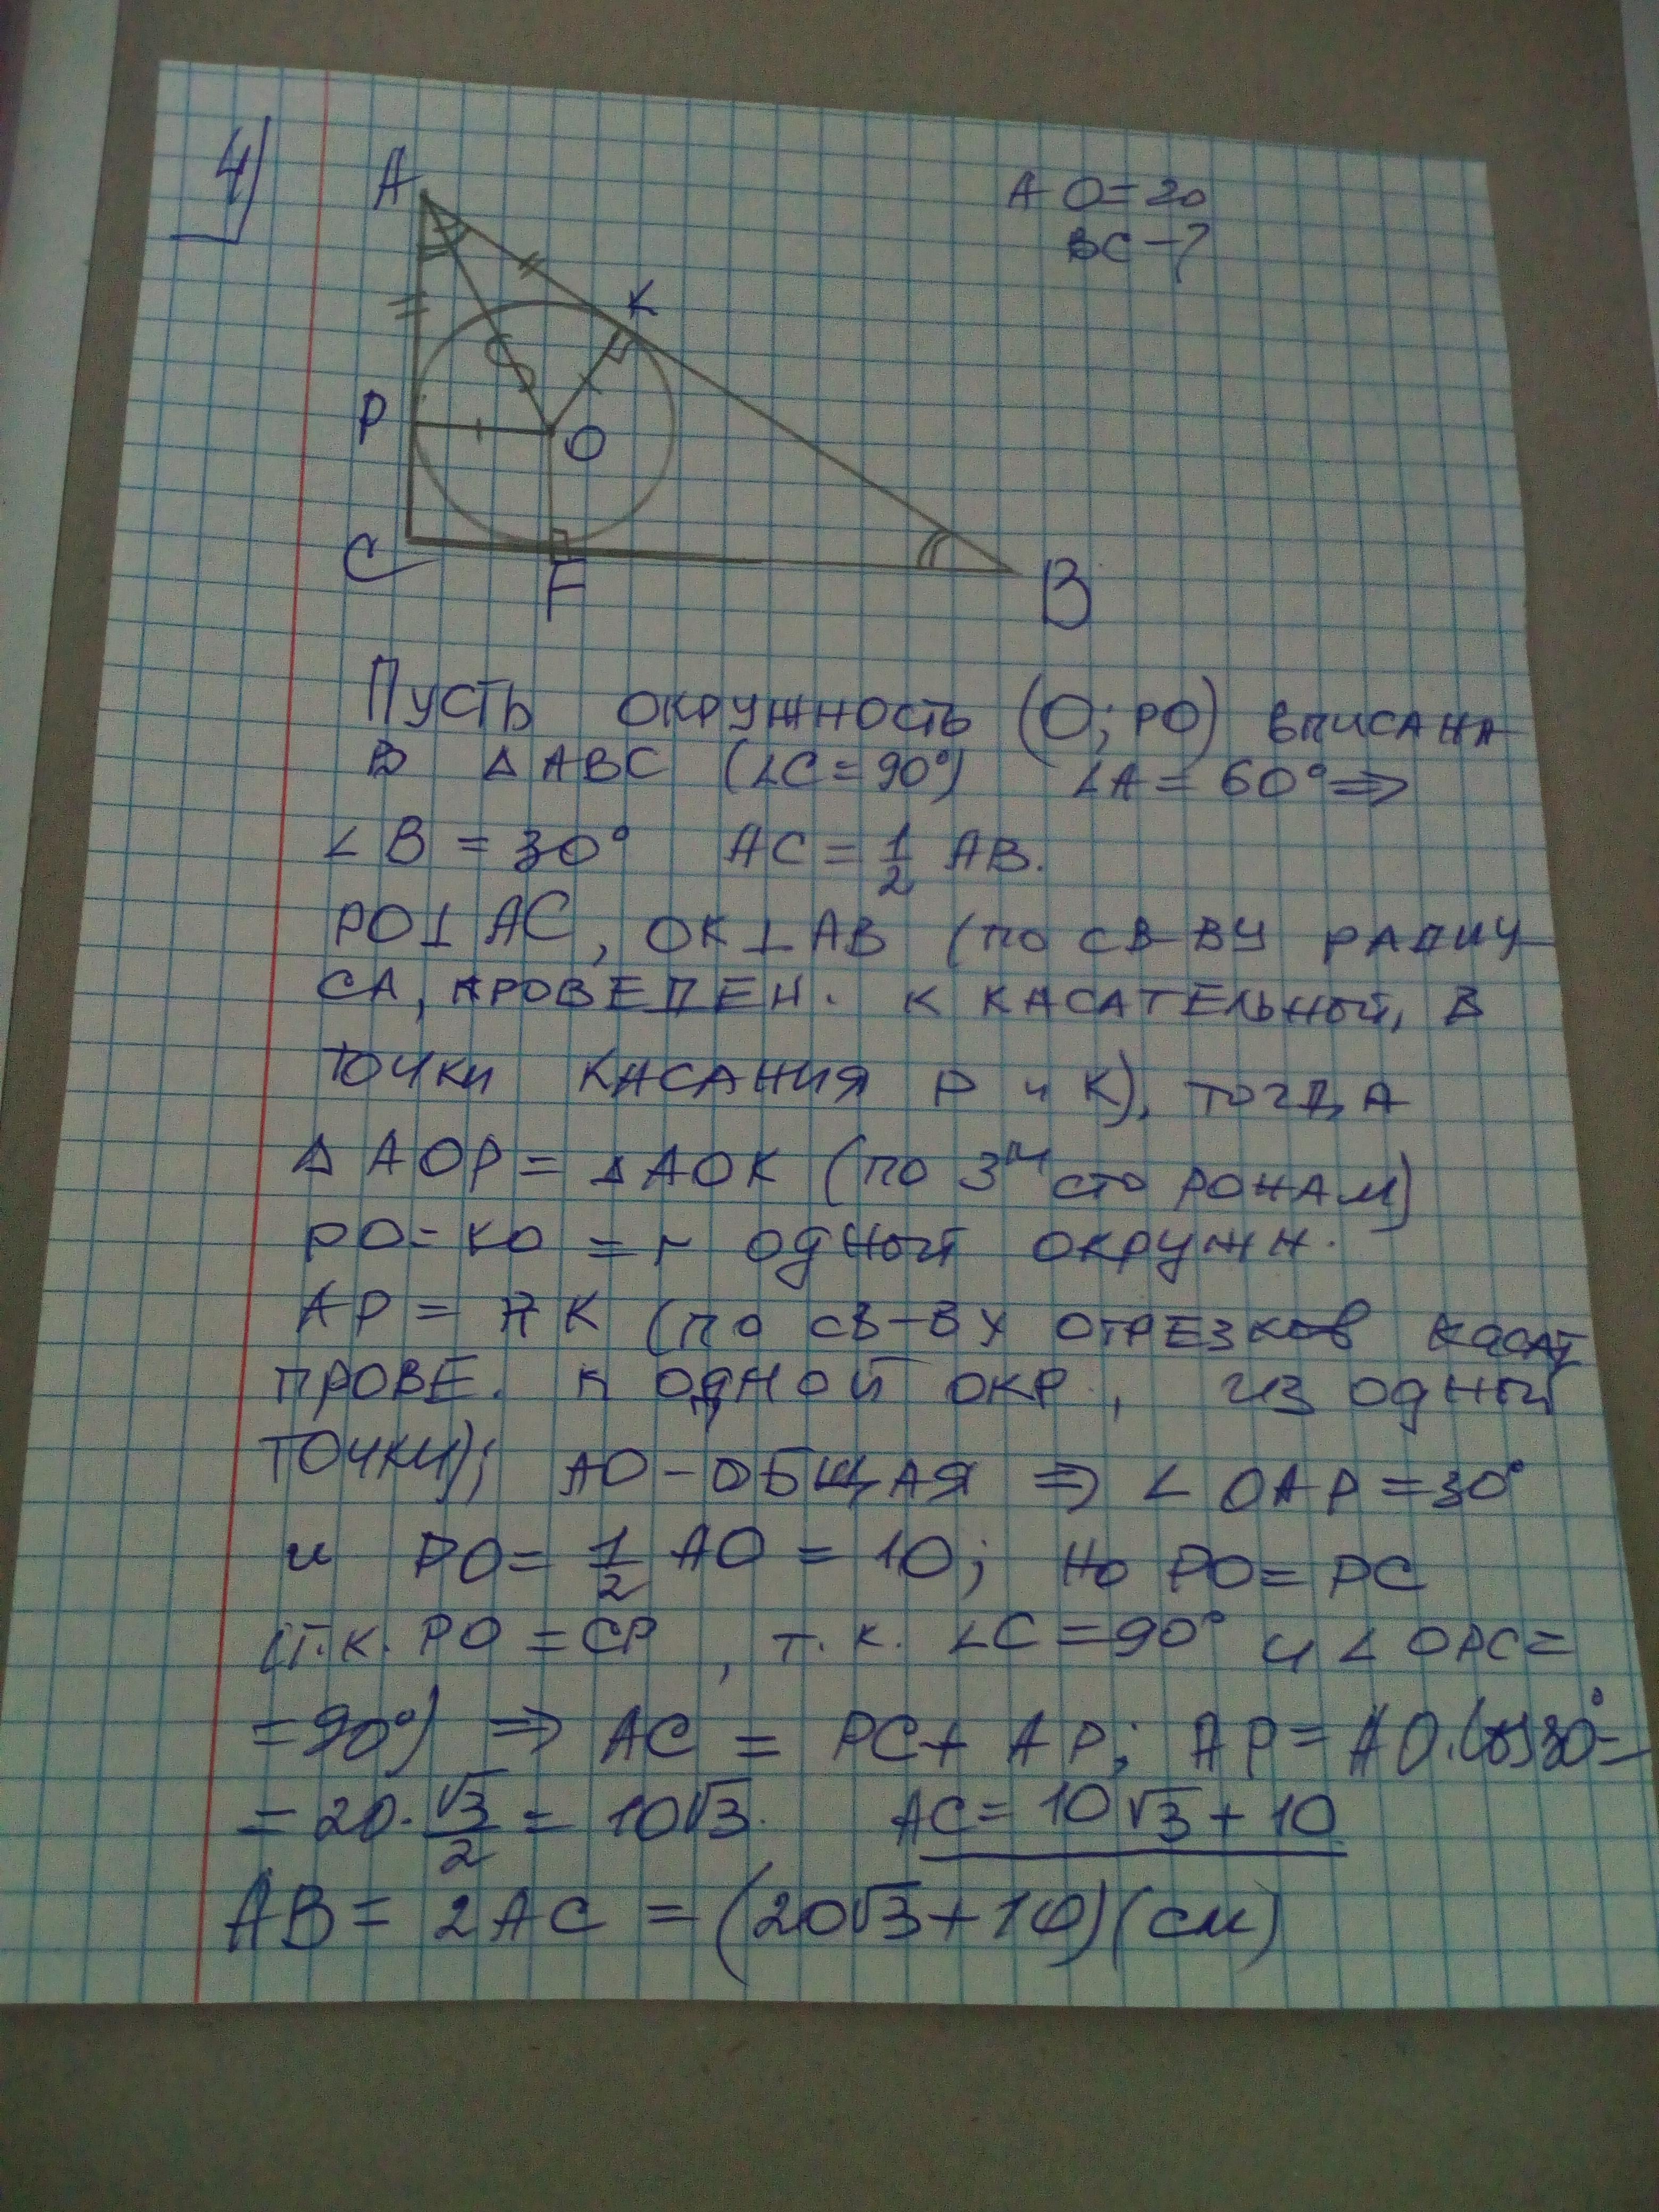 4)
A
K
P
O
C
F
B
AO=20
BC-?
Пусть окружность (О; РО) вписана
в △ABC (∠C=90°) ∠A=60°⇒
∠B=30° AC=1/2 AB.
PO⊥AC, OK⊥AB (по св-ву радиу
са, проведен. к касательный, в
точки касания P и K), тогда
△AOP=△AOK (по 3м сторонам)
PO=KO=r одный окружн.
AP=AK (по св-ву отрезков касат
прове. к одной окр., из одный
точки); AO-общая ⇒ ∠OAP=30°
и PO=1/2 AO=10; но PO=PC
(т.к. PO=CP, т.к. ∠C=90° и ∠OPC=
=90°) ⇒ AC=PC+AP; AP=AO·cos30°=
=20·√3/2=10√3. AC=10√3+10
AB=2AC=(20√3+10)(см)